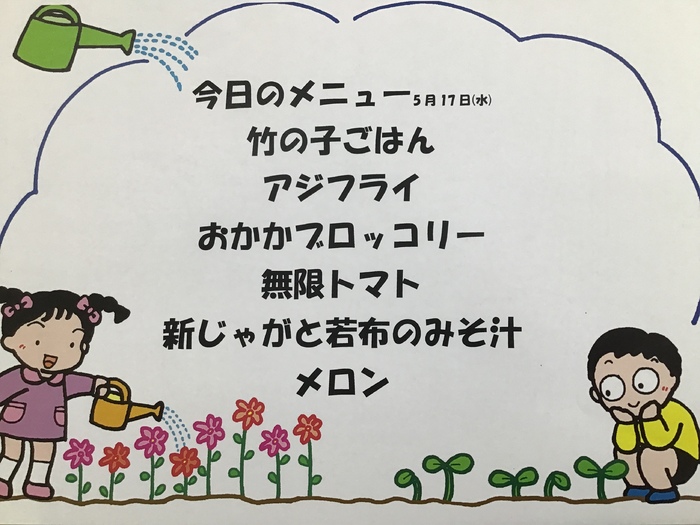 今日のメニュー5月17日(水)
竹の子ごはん
アジフライ
おかかブロッコリー
無限トマト
新じゃがと若布のみそ汁
メロン